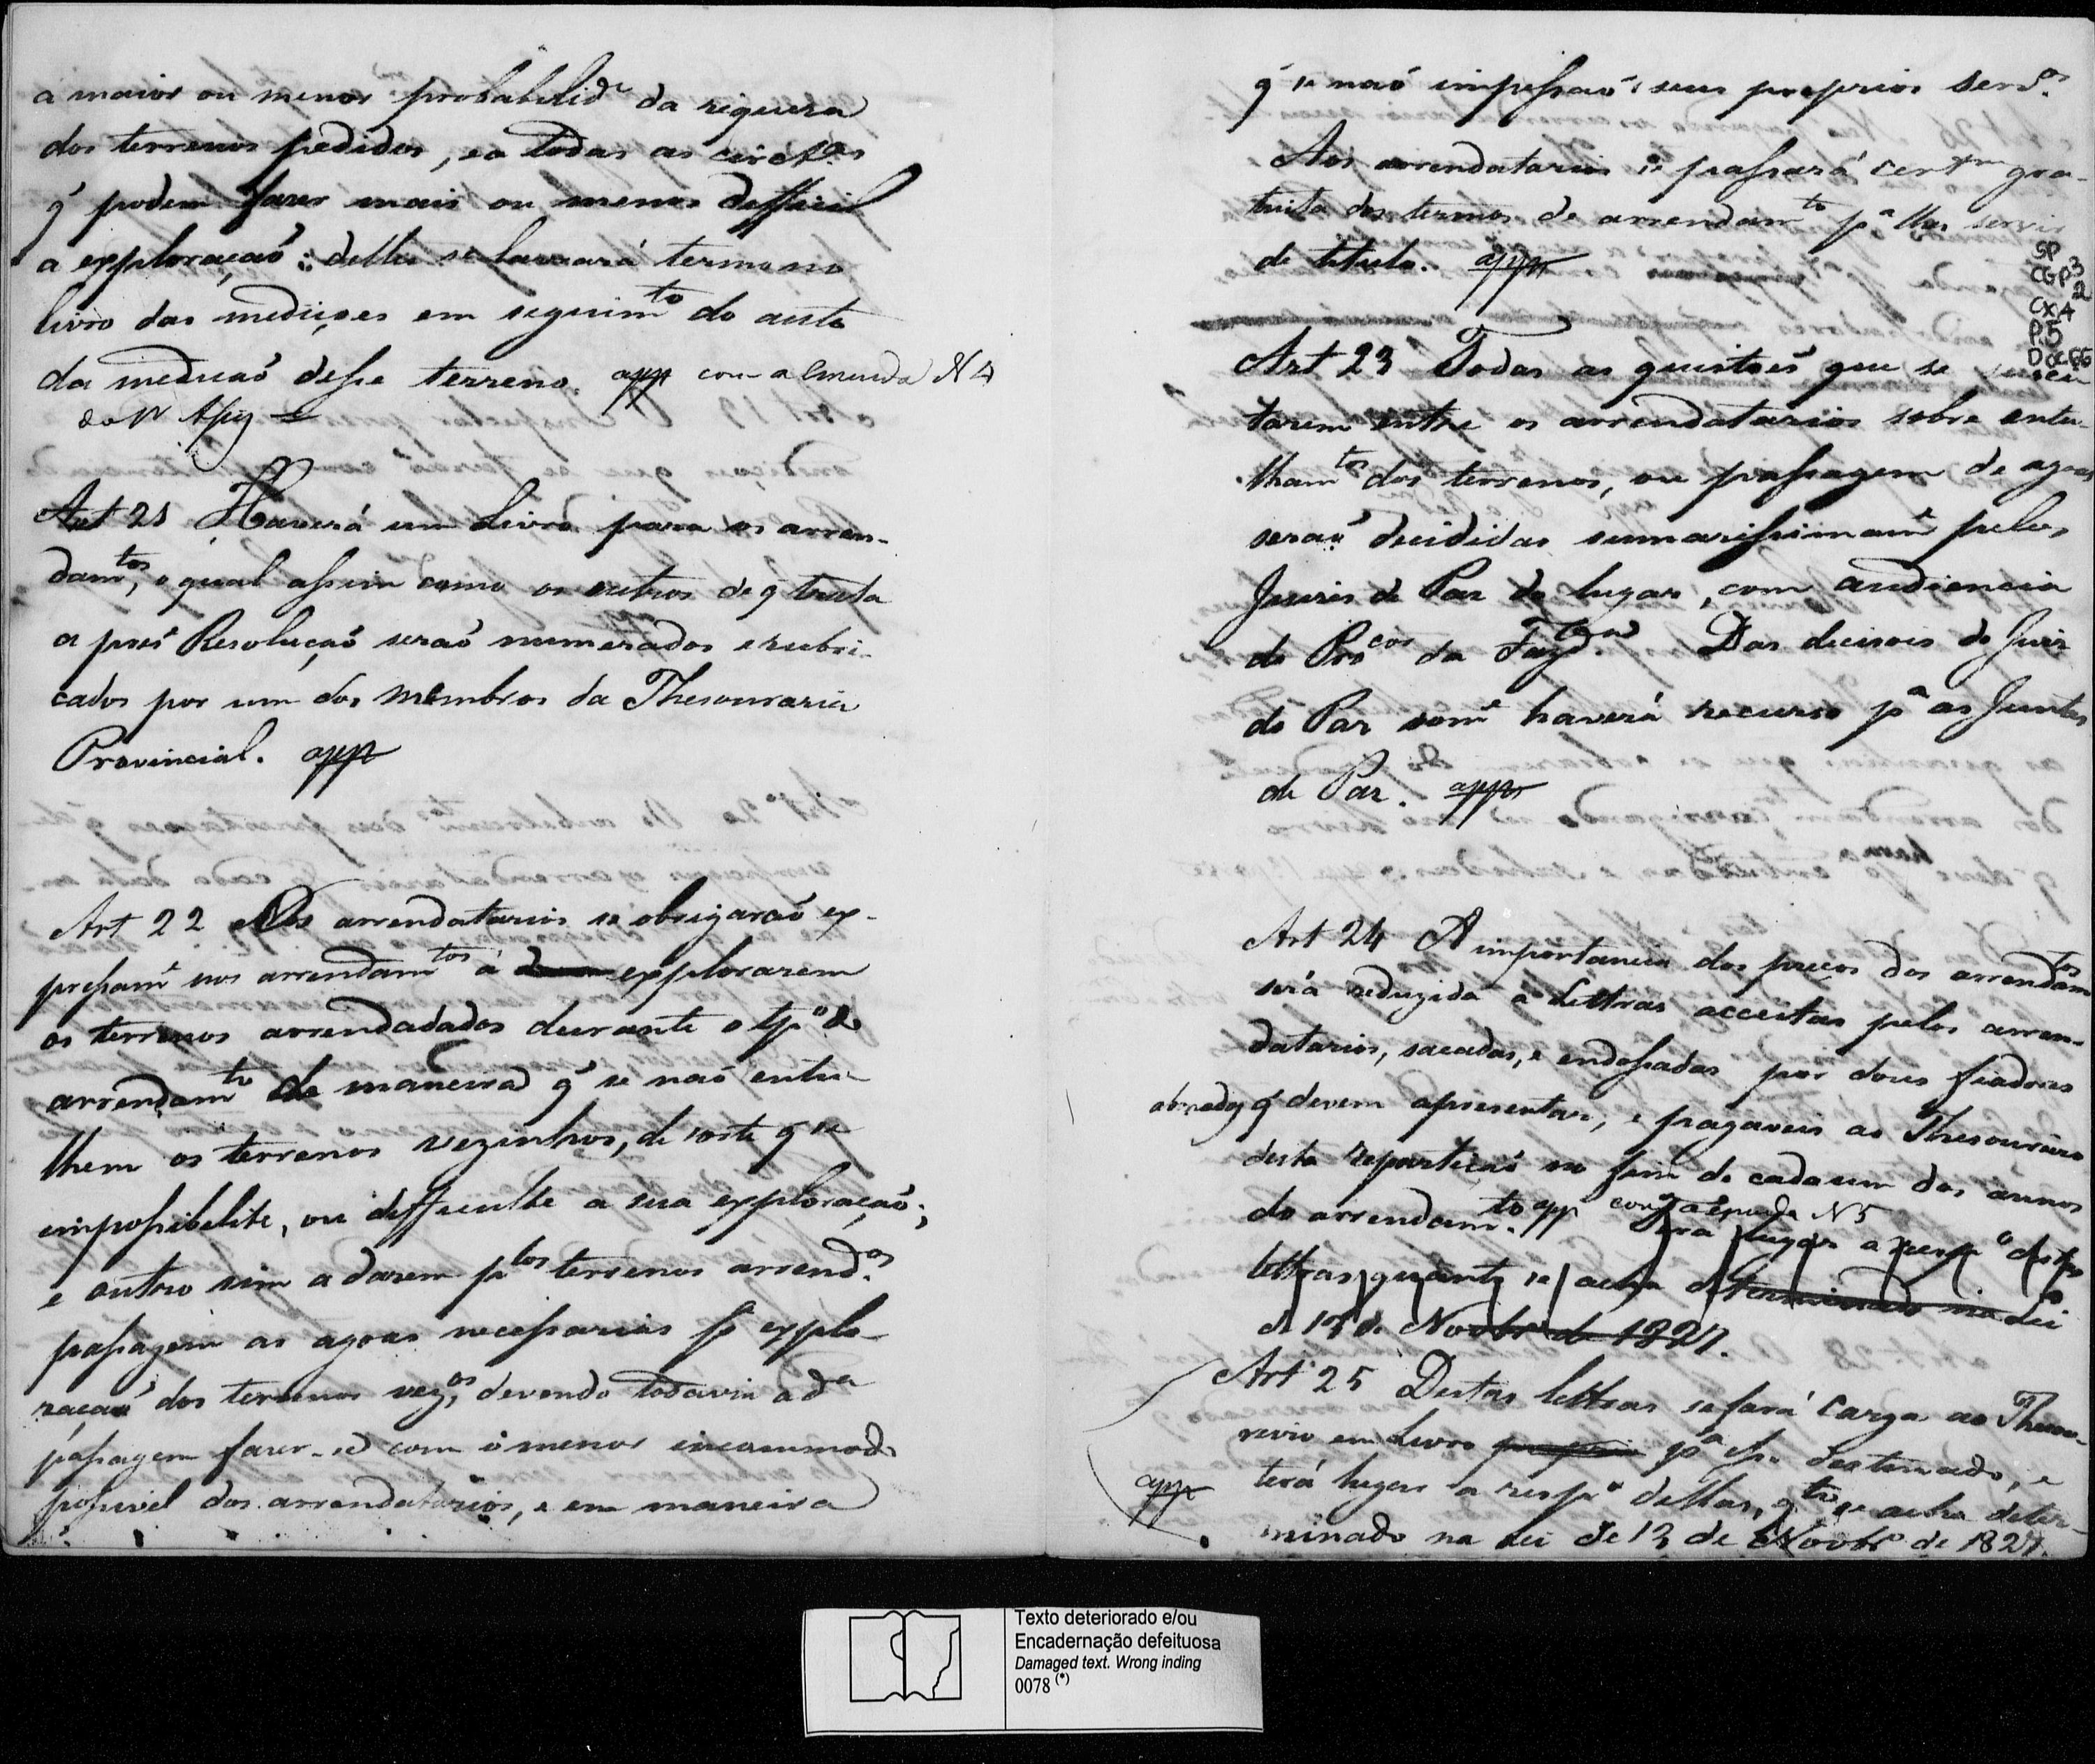 a maior ou menor probabelid.e da riqueza
dos terrenos pedidos, e a todas as circt.as
q̃ podem fazer mais ou menos difficil
a exploração: delles se lavrará termo no
livro das medições em seguim.to do auto
da medicaõ desse terreno. app com a Emenda N 4
do Nr
Art 21 Haverá um Livro para os arren-
dam.tos, o qual assim como os outros de q trata
a pres.e Resoluçaõ seraõ numerados e rubri-
cados por um dos Membros da Thesouraria
Provincial. app
Art 22 Os arrendatarios se obrigaraõ ex-
pressam.e nos arrendam.tos á explorarem
os terrenos arrendadados durante o tp.o do
arrendam.to de maneira q̃ se naõ entu-
lhem os terrenos vezinhos, de sorte q se
impossibelite, ou difficulte a sua exploraçaõ;
e outro sim a darem p.los terrenos arrend.os
passagem as agoas necessarias p.a explo-
raçaõ dos terrenos vez.os, devendo todavia a d.a
passagem fazer-se com o menor incommodo
possivel dos arrendatarios, e em maneira
q̃ se naõ impessaõ seus proprios serv.os
Aos arrendatarios se passará cert.m gra-
tuita dos termos de arrendam.to p.a lhes servir
de titulo. app
SP
CGP3
2
CX4
P5
Doc 66
Art 23 Todas as questoẽs que se susci
tarem entre os arrendatarios sobre entu-
lham.tos dos terrenos, ou passagem de agoas
seraõ decididas summarissimam.e pelos
Juizes de Paz do lugar, com audiencia
do Pro.cor da Faz.da Das decisois do Juiz
de Paz som.e haverá recurso p.a as Juntas
de Paz. app
Art 24 A importancia dos preços dos arrendam.tos
será reduzida a Lettras acceitas pelos arren-
datarios, sacadas, e endossadas por dous fiadores
abonados q̃ devem apresentar, e pagaveis ao Thesoureiro
desta repartiçaõ no fim de cada um dos annos
do arrendam.to app com a emenda N 5 Terá lugar a resp.o destas
lettras quanto se acha determinado na Lei
de 13 de Novbr.o de 1827.
Art 25 Destas lettras se fará Carga ao Thesou-
reiro em Livro proprio p.a esse destinado, e
app terá lugar a resp.o dellas, q.to se acha deter-
minado na Lei de 13 de Novbr.o de 1827.
Texto deteriorado e/ou
Encadernação defeituosa
Damaged text. Wrong inding
0078 (*)